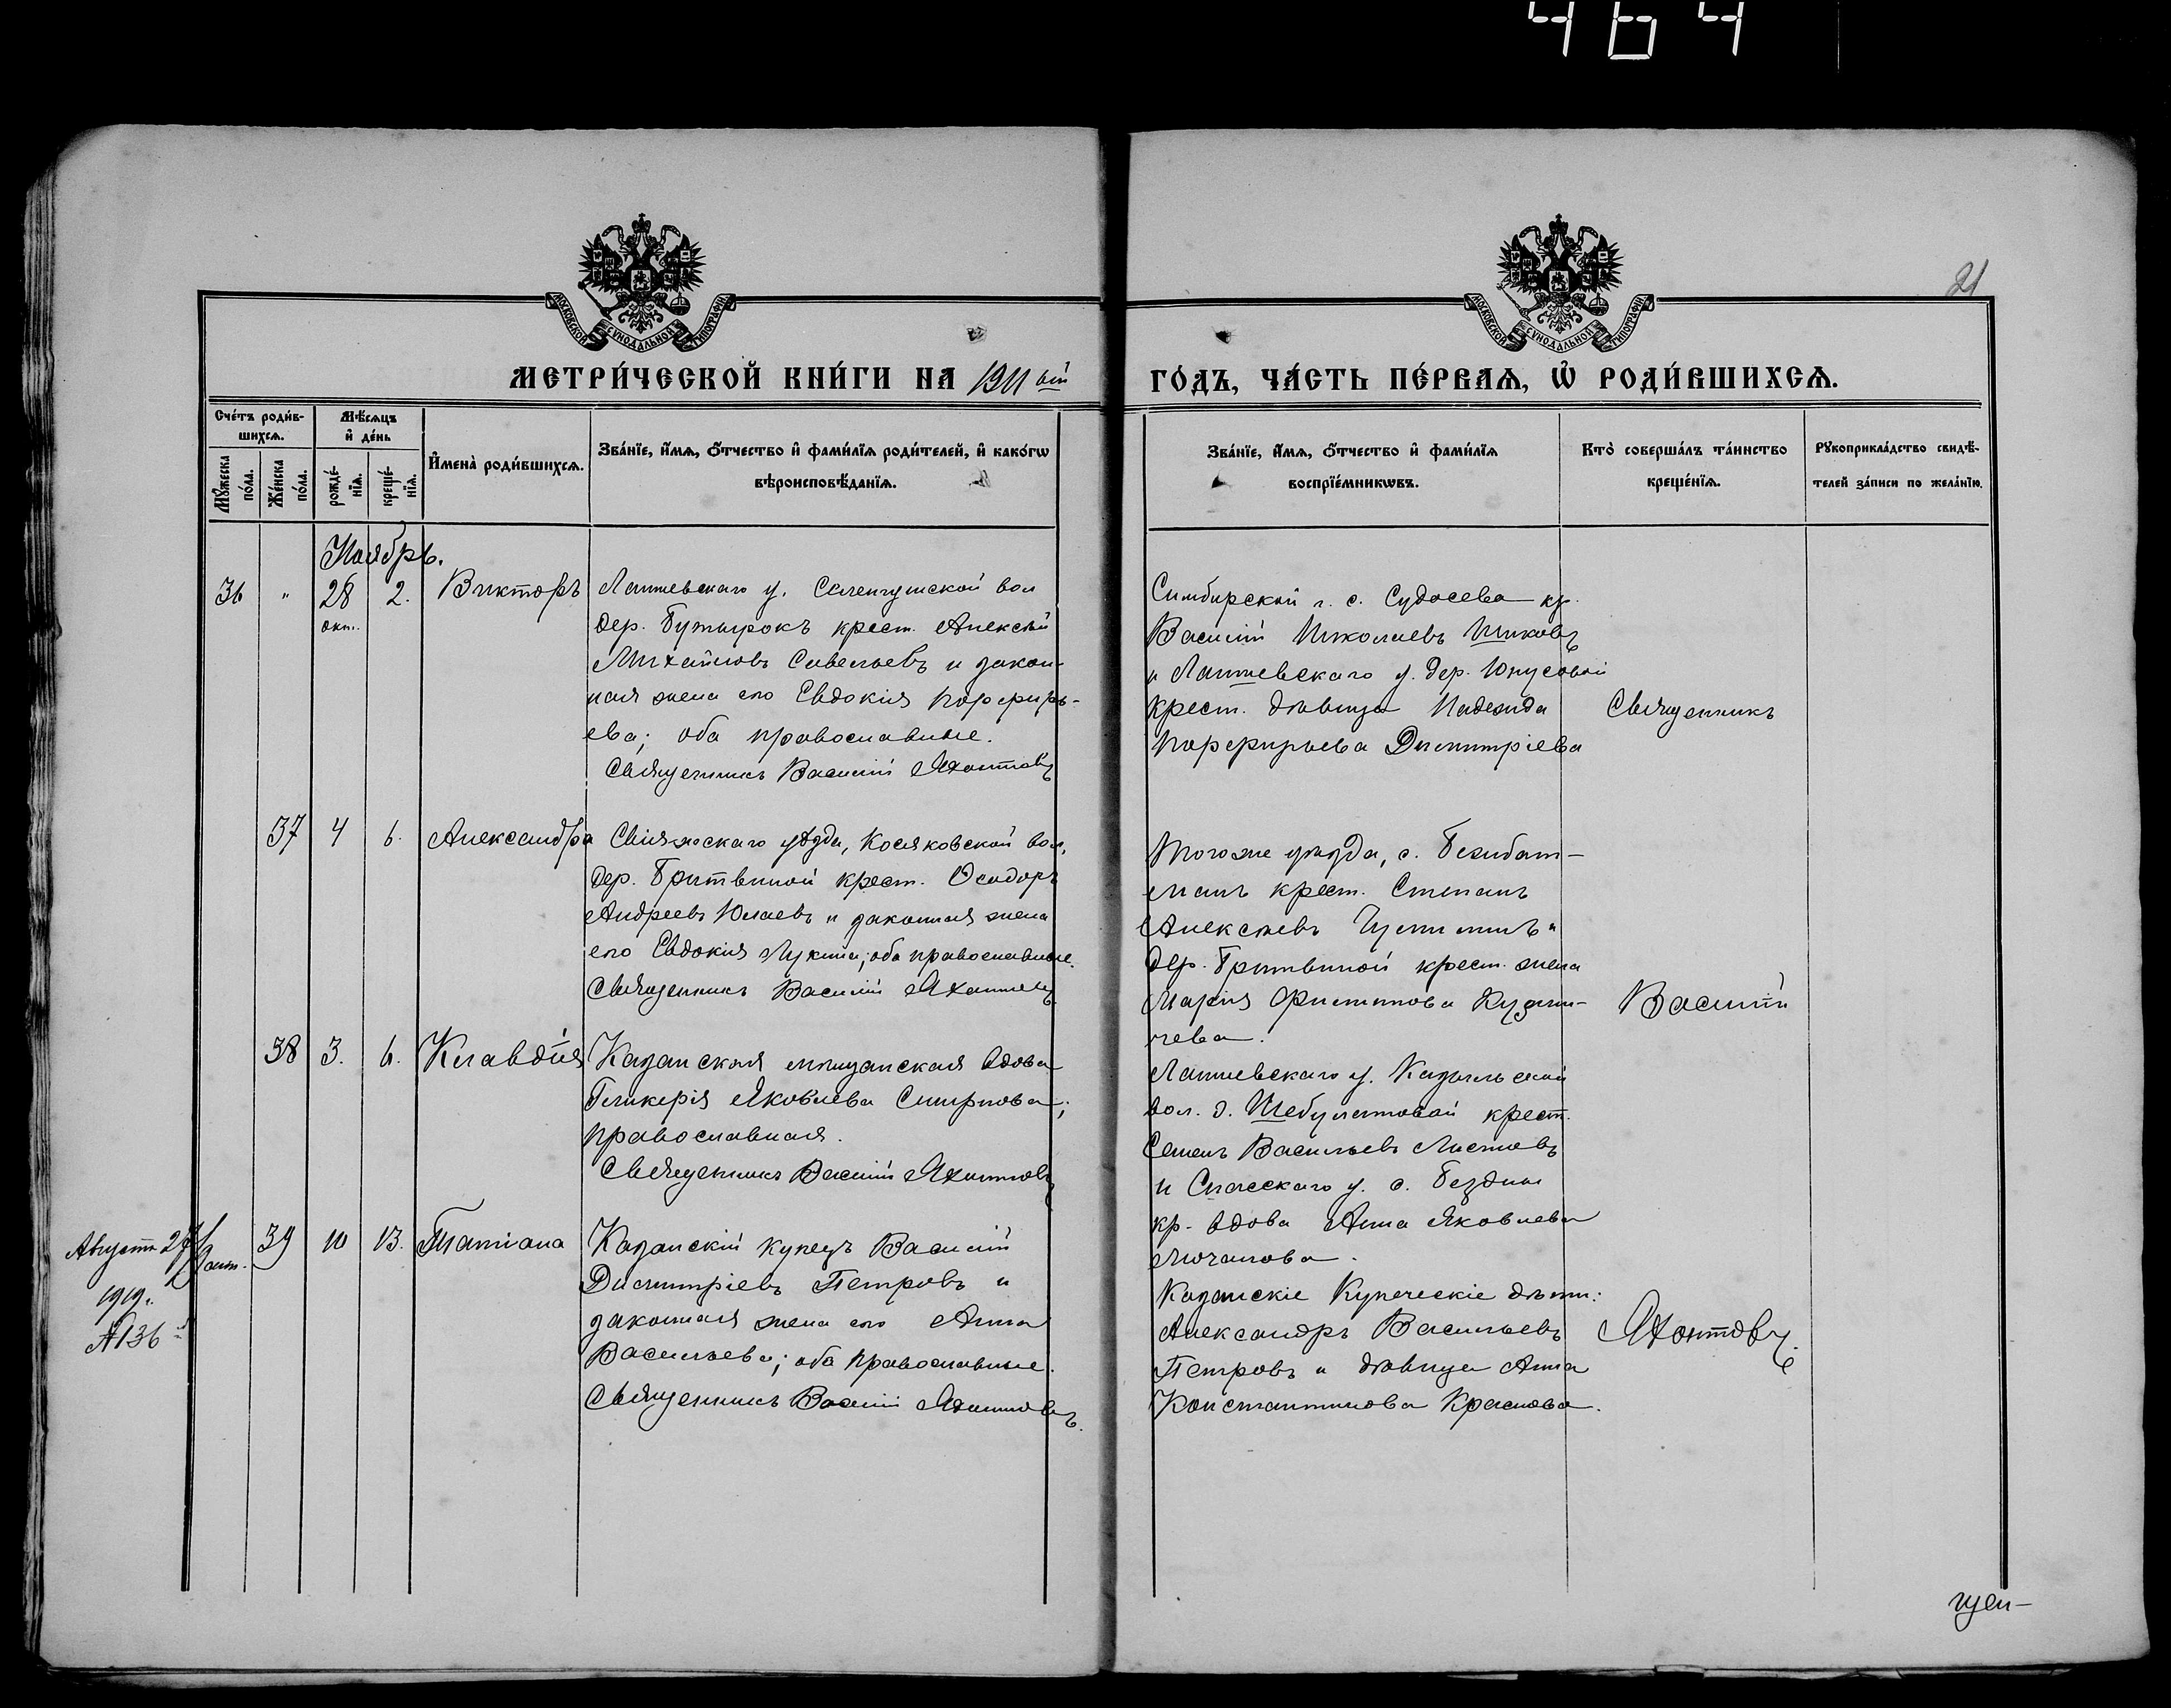 464
21
МОСКОВСКОЙ СѴНОДАЛЬНОЙ ТИПОГРАФІИ
МОСКОВСКОЙ СѴНОДАЛЬНОЙ ТИПОГРАФІИ
МЕТРИ́ЧЕСКОЙ КНИ́ГИ НА 1911 ый
ГО́ДЪ, ЧА́СТЬ ПЕ́РВАѦ, Ѡ҆ РОДИ́ВШИХСѦ.
Сче́тъ роди́в-
шихсѧ.
Мѣ́сѧцъ
и҆ де́нь
Мꙋ́жеска
по́ла.
Же́нска
по́ла.
рожде́-
нїѧ.
креще́-
нїѧ.
И҆мена̀ роди́вшихсѧ.
Зва́нїе, и҆́мѧ, ѻ҆́тчество и҆ фами́лїѧ роди́телей, и҆ како́гѡ
вѣроисповѣ́данїѧ.
Зва́нїе, и҆́мѧ, ѻ҆́тчество и҆ фами́лїѧ
воспрїе́мникѡвъ.
Кто̀ соверша́лъ та́инство
креще́нїѧ.
Рꙋкоприкла́дство свидѣ́-
телей за́писи по жела́нїю.
Ноябрь.
36 " 28 2. Викторъ
окт.
Лаишевскаго у. вол
дер. Бутырокъ крест. Алексѣй
Михайловъ Савельевъ и закон-
ная жена его Евдокия Порфирь-
ева; оба православные.
Священникъ Василій Яхонтовъ
Симбирской г. с. Судосева кр.
Василій Николаевъ
и Лаишевскаго у. дер. Юнусовой
крест. дѣвица Надежда
Порфирьева Димитріева
Священникъ
37 4 6. Александра
Свіяжскаго уѣзда, Косяковской вол.
дер. Бритвиной крест. Ѳеодоръ
Андреевъ Юлаевъ и законная жена
его Евдокия Лукина; оба православные.
Священникъ Василій Яхонтовъ
Того же уѣзда, с.
крест. Степанъ
Алексѣевъ и
дер. Бритвиной крест. жена
Марія Филиппова Кузьми-
чева.
Василій
38 3. 6. Клавдія
Казанская мѣщанская вдова
Гликерія Яковлева Смирнова;
православная.
Священникъ Василій Яхонтовъ
Лаишевскаго у.
вол. д. крест.
Семенъ Васильевъ Листовъ
и Спасскаго у. с. Бездны
кр. вдова Анна Яковлева
39 10 13. Татіана
Августа 27
1919г.
№136
Казанскій купецъ Василій
Димитріевъ Петровъ и
законная жена его Анна
Васильева; оба православные.
Священникъ Василій Яхонтовъ.
Казанскіе Купеческіе дѣти:
Александръ Васильевъ
Петровъ и дѣвица Анна
Константинова Краснова.
Яхонтовъ.
щен-